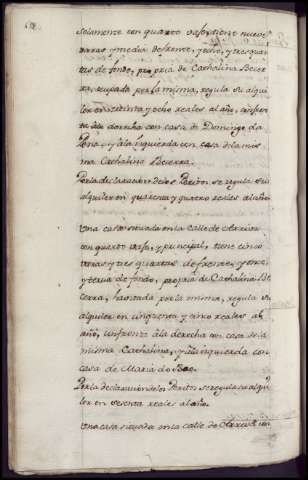 solamente con quarto vajo tiene nueve
varas y media de frente, y ocho, y tres quar
tas de fondo, propria de Cathalina Becer
ra, ocupada por la misma, regula su alqui
ler en treinta y ocho reales al año, confron
ta ala derecha con casa de Domingo da
Pena, y âla izquierda con casa dela mis
ma Cathalina Becerra.
Por la declaracion delos Peritos, se regula su
alquiler en quarenta y quatro reales al año.
Una casa situada en la Calle de
con quarto vajo, y principal, tiene cinco
varas y tres quartas de frente, y onze,
y tercia de fondo, propria de Cathalina Be
cerra, havitada por la misma, regula su
alquiler en cinquenta y cinco reales al
año, confronta âla derecha con casa dela
misma Cathalina, y âla izquierda con
casa de Maria do Bao.
Por la declaracion delos Peritos se regula su alqui
ler en sesenta reales al año.
Una casa situada en la calle de con